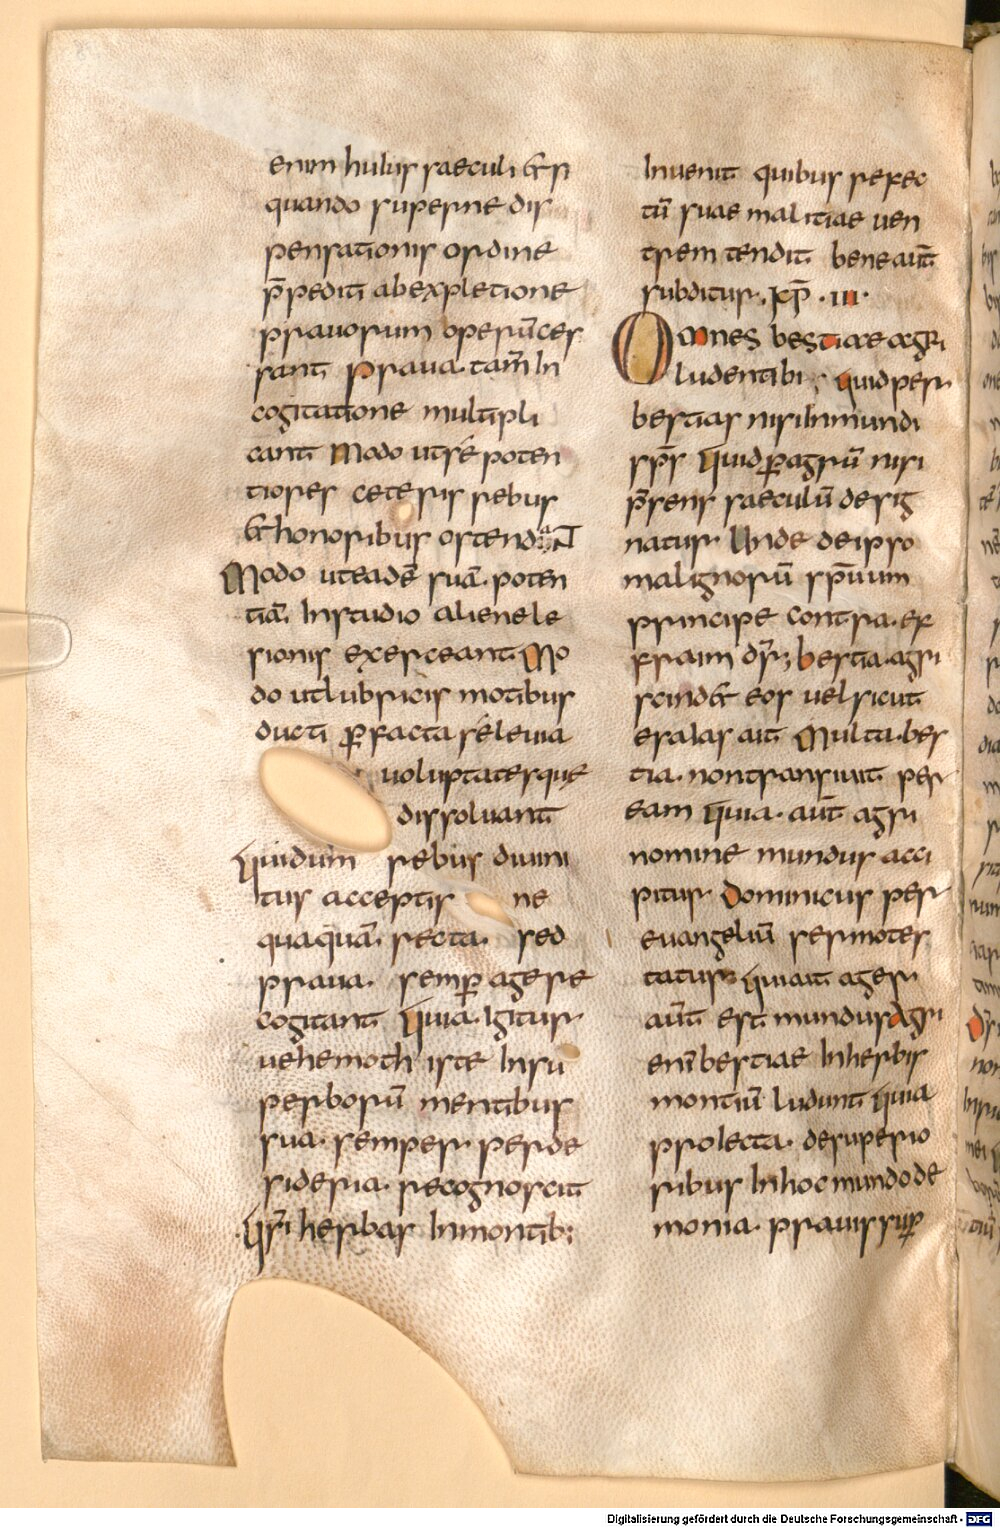 enim huius saeculi & si
quando superne dis
pensationis ordine
p̄pediti abexpletione
pravorum operū ces
sant prava tam̄ In
cogitatione multipli
cant Modo utsé poten
tiores ceteris rebus
& honoribus ostendaNT
Modo uteadē suā poten
tiā In studio alienele
sionis exerceant Mo
do utlubricis motibus
ducti ꝑfacta sé levia
voluptatesque
dissolvant
Quidum rebus divini
tus acceptis ne
quaquā recta sed
prava semꝑ agere
cogitant Quia Igitur
vehemoth iste In su
perborū mentibus
sua semper perde
sideria recognoscit
Qs̄i herbas In montib;
Invenit quibus refec
tū suae malitiae ven
trem tendit bene aut̄
subditur, kp̄ · III ·
Omnes bestiae agri
ludent ibi; Quid per
bestias nisi Inmundi
sp̄s Quid ꝑ agrū nisi
p̄sens saeculū desig
natur Unde deipso
malignorū sp̄uum
principe contra ef
fraim dr̄; bestia agri
scind& eos vel sicut
esaias ait Mala bes
tia non transivit per
eam Quia aut̄ agri
nomine mundus acci
pitur Dominicus per
evangeliū sermo tes
tatur Qui ait ager
aut̄ est mundus Agri
eni bestiae In herbis
montiū ludunt Quia
prolecta desuperio
ribus In hoc mundo de
monia pravis suꝑ
Digitalisierung gefördert durch die Deutsche Forschungsgemeinschaft - DFG